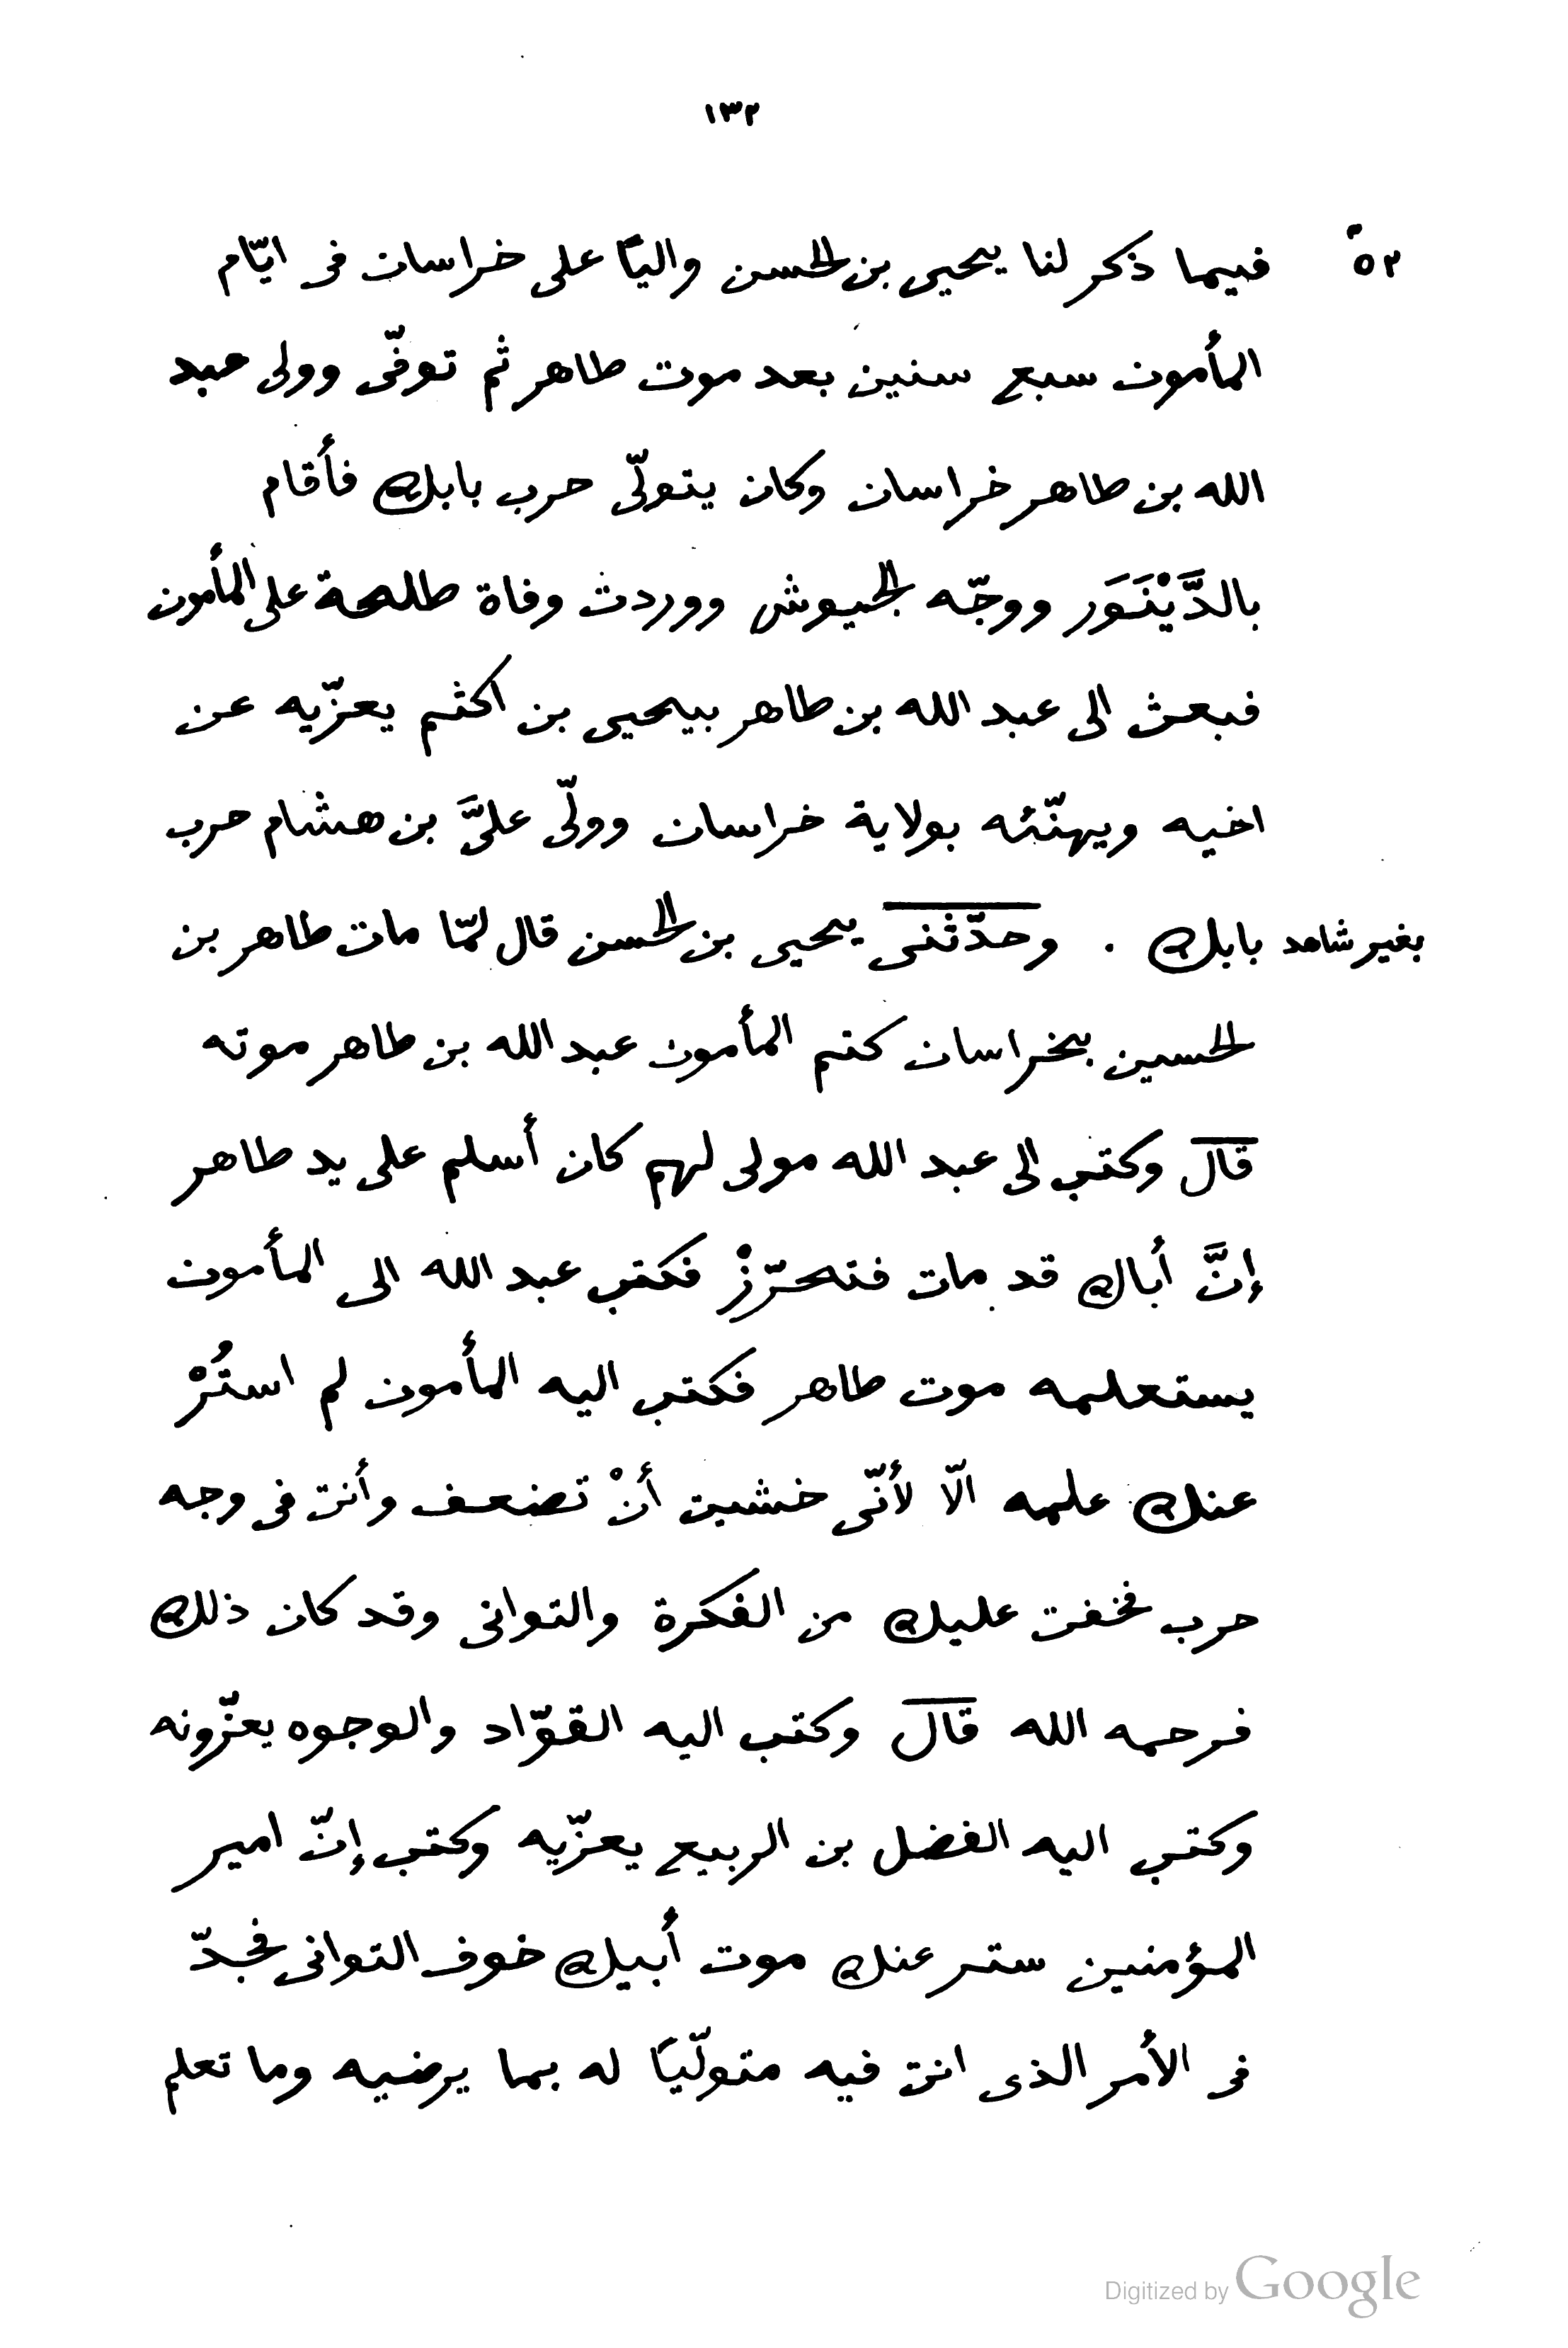 ١٣٢
٥٢ فيما ذكر لنا يحيى بن الحسن واليًا على خراسان فى ايّام
المأمون سبع سنين بعد موت طاهر ثم توفّى وولى عبد
الله بن طاهر خراسان وكان يتولّى حرب بابك فأقام
بالدَّيْنَوَر ووجّه الجيوش ووردت وفاة طلحة على المأمون
فبعث الى عبد الله بن طاهر بيحيى بن اكثم يعزّيه عن
اخيه ويهنّئه بولاية خراسان وولّى علىَّ بن هشام حرب
بابك . وحدّثنى يحيى بن الحسن قال لمّا مات طاهر بن
بغير شاهد
الحسين بخراسان كتم المأمون عبد الله بن طاهر موته
قال وكتب الى عبد الله مولى لهم كان أسلم على يد طاهر
إنَّ أباك قد مات فتحرّزْ فكتب عبد الله الى المأمون
يستعلمه موت طاهر فكتب اليه المأمون لم استُرْ
عنك علمه الّا لأنّى خشيت أنْ تضعف وأنت فى وجه
حرب فخفت عليك من الفكرة والتوانى وقد كان ذلك
فرحمه الله قال وكتب اليه القوّاد والوجوه يعزّونه
وكتب اليه الفضل بن الربيع يعزّيه وكتب إنّ امير
المؤمنين ستر عنك موت أبيك خوف التوانى فجدّ
فى الأمر الذى انت فيه متولّيًا له بما يرضيه وما تعلم
Digitized by Google